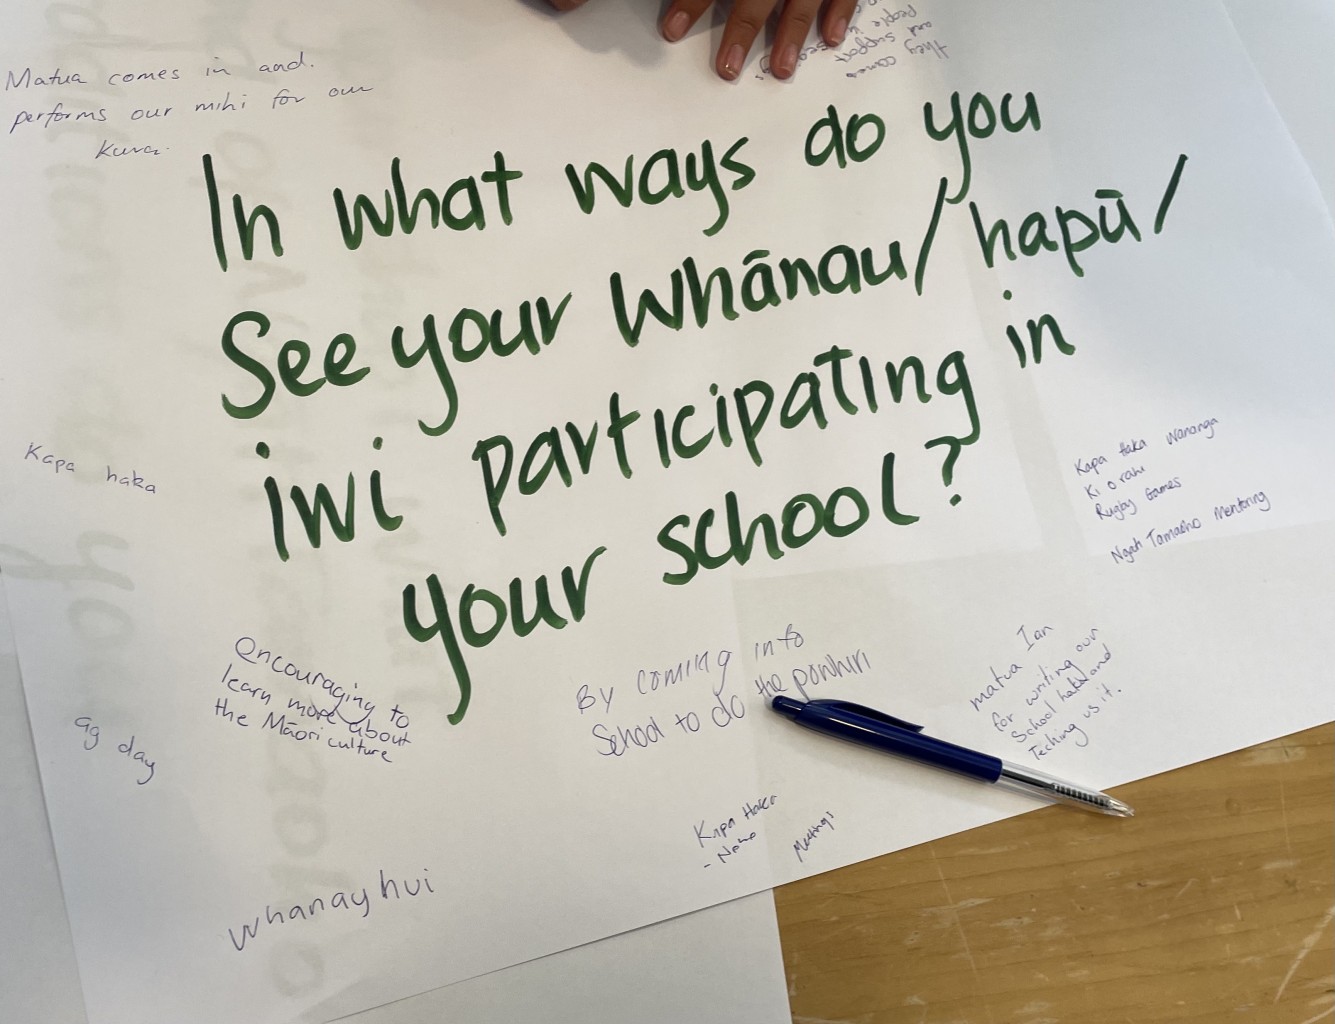 they comes
and support
people in
Matua comes in and.
performs our mihi for our
Kura.
In what ways do you
See your Whānau/hapū/
iwi participating in
your school?
Kapa haka
Kapa Haka Wananga
Ki o rahi
Rugby Games
Ngati Tamaoho Mentoring
encouraging to
learn more about
the Māori culture
By coming into
School to do the powhiri
matua Ian
for writing our
School haka and
Teching us it.
ag day
Kapa Haka
Meetings
whanay hui